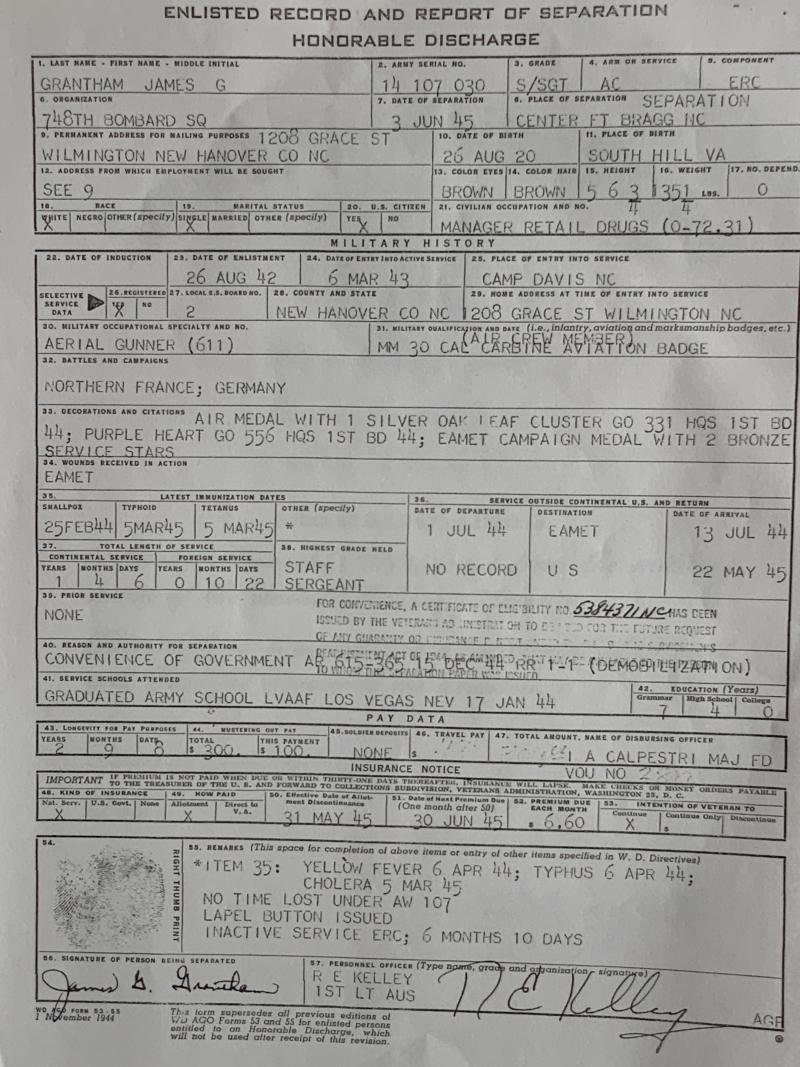 ENLISTED RECORD AND REPORT OF SEPARATION
HONORABLE DISCHARGE
1. LAST NAME - FIRST NAME - MIDDLE INITIAL
GRANTHAM JAMES G
2. ARMY SERIAL NO.
14 107 030
3. GRADE
S/SGT
4. ARM OR SERVICE
AC
5. COMPONENT
ERC
6. ORGANIZATION
748TH BOMBARD SQ
7. DATE OF SEPARATION
3 JUN 45
8. PLACE OF SEPARATION SEPARATION
CENTER FT BRAGG NC
9. PERMANENT ADDRESS FOR MAILING PURPOSES 1208 GRACE ST
WILMINGTON NEW HANOVER CO NC
10. DATE OF BIRTH
26 AUG 20
11. PLACE OF BIRTH
SOUTH HILL VA
12. ADDRESS FROM WHICH EMPLOYMENT WILL BE SOUGHT
SEE 9
13. COLOR EYES
BROWN
14. COLOR HAIR
BROWN
15. HEIGHT
5 6 3
4
16. WEIGHT
1351 LBS.
4
17. NO. DEPEND.
0
18. RACE
WHITE NEGRO OTHER (specify)
X
19. MARITAL STATUS
SINGLE MARRIED OTHER (specify)
X
20. U.S. CITIZEN
YES NO
X
21. CIVILIAN OCCUPATION AND NO.
MANAGER RETAIL DRUGS (0-72.31)
MILITARY HISTORY
22. DATE OF INDUCTION
23. DATE OF ENLISTMENT
26 AUG 42
24. DATE OF ENTRY INTO ACTIVE SERVICE
6 MAR 43
25. PLACE OF ENTRY INTO SERVICE
CAMP DAVIS NC
SELECTIVE SERVICE DATA
26. REGISTERED
YES NO
X
27. LOCAL S.S. BOARD NO.
2
28. COUNTY AND STATE
NEW HANOVER CO NC
29. HOME ADDRESS AT TIME OF ENTRY INTO SERVICE
1208 GRACE ST WILMINGTON NC
30. MILITARY OCCUPATIONAL SPECIALTY AND NO.
AERIAL GUNNER (611)
31. MILITARY QUALIFICATION AND DATE (i.e., infantry, aviation and marksmanship badges, etc.)
(AIR CREW MEMBER)
MM 30 CAL CARBINE AVIATION BADGE
32. BATTLES AND CAMPAIGNS
NORTHERN FRANCE; GERMANY
33. DECORATIONS AND CITATIONS AIR MEDAL WITH 1 SILVER OAK LEAF CLUSTER GO 331 HQS 1ST BD
44; PURPLE HEART GO 556 HQS 1ST BD 44; EAMET CAMPAIGN MEDAL WITH 2 BRONZE
SERVICE STARS
34. WOUNDS RECEIVED IN ACTION
EAMET
35. LATEST IMMUNIZATION DATES
SMALLPOX TYPHOID TETANUS OTHER (specify)
25FEB44 5MAR45 5 MAR45 *
36. SERVICE OUTSIDE CONTINENTAL U.S. AND RETURN
DATE OF DEPARTURE DESTINATION DATE OF ARRIVAL
1 JUL 44 EAMET 13 JUL 44
NO RECORD U S 22 MAY 45
37. TOTAL LENGTH OF SERVICE
CONTINENTAL SERVICE FOREIGN SERVICE
YEARS MONTHS DAYS YEARS MONTHS DAYS
1 4 6 0 10 22
38. HIGHEST GRADE HELD
STAFF
SERGEANT
39. PRIOR SERVICE
NONE
FOR CONVENIENCE, A CERTIFICATE OF ELIGIBILITY NO. 5384371NC HAS BEEN
ISSUED BY THE VETERANS ADMINISTRATION TO BE USED FOR THE FUTURE REQUEST
OF ANY GUARANTY OR INSURANCE
40. REASON AND AUTHORITY FOR SEPARATION
CONVENIENCE OF GOVERNMENT AR 615-365 15 DEC 44 RR 1-1 (DEMOBILIZATION)
41. SERVICE SCHOOLS ATTENDED
GRADUATED ARMY SCHOOL LVAAF LOS VEGAS NEV 17 JAN 44
42. EDUCATION (Years)
Grammar High School College
7 4 0
PAY DATA
43. LONGEVITY FOR PAY PURPOSES
YEARS MONTHS DAYS
2 9 8
44. MUSTERING OUT PAY
TOTAL THIS PAYMENT
$ 300. $ 100.
45. SOLDIER DEPOSITS
NONE
46. TRAVEL PAY
$
47. TOTAL AMOUNT, NAME OF DISBURSING OFFICER
I A CALPESTRI MAJ FD
VOU NO
INSURANCE NOTICE
IMPORTANT IF PREMIUM IS NOT PAID WHEN DUE OR WITHIN THIRTY-ONE DAYS THEREAFTER, INSURANCE WILL LAPSE. MAKE CHECKS OR MONEY ORDERS PAYABLE
TO THE TREASURER OF THE U. S. AND FORWARD TO COLLECTIONS SUBDIVISION, VETERANS ADMINISTRATION, WASHINGTON 25, D. C.
48. KIND OF INSURANCE
Nat. Serv. U.S. Govt. None
X
49. HOW PAID
Allotment Direct to V. A.
X
50. Effective Date of Allotment Discontinuance
31 MAY 45
51. Date of Next Premium Due (One month after 50)
30 JUN 45
52. PREMIUM DUE EACH MONTH
$ 6.60
53. INTENTION OF VETERAN TO
Continue Continue Only Discontinue
X $
54.
RIGHT THUMB PRINT
55. REMARKS (This space for completion of above items or entry of other items specified in W. D. Directives)
*ITEM 35: YELLOW FEVER 6 APR 44; TYPHUS 6 APR 44;
CHOLERA 5 MAR 45
NO TIME LOST UNDER AW 107
LAPEL BUTTON ISSUED
INACTIVE SERVICE ERC; 6 MONTHS 10 DAYS
56. SIGNATURE OF PERSON BEING SEPARATED
James G. Grantham
57. PERSONNEL OFFICER (Type name, grade and organization - signature)
R E KELLEY
1ST LT AUS
R E Kelley
AGF
WD AGO FORM 53-55
1 November 1944
This form supersedes all previous editions of
WD AGO Forms 53 and 55 for enlisted persons
entitled to an Honorable Discharge, which
will not be used after receipt of this revision.